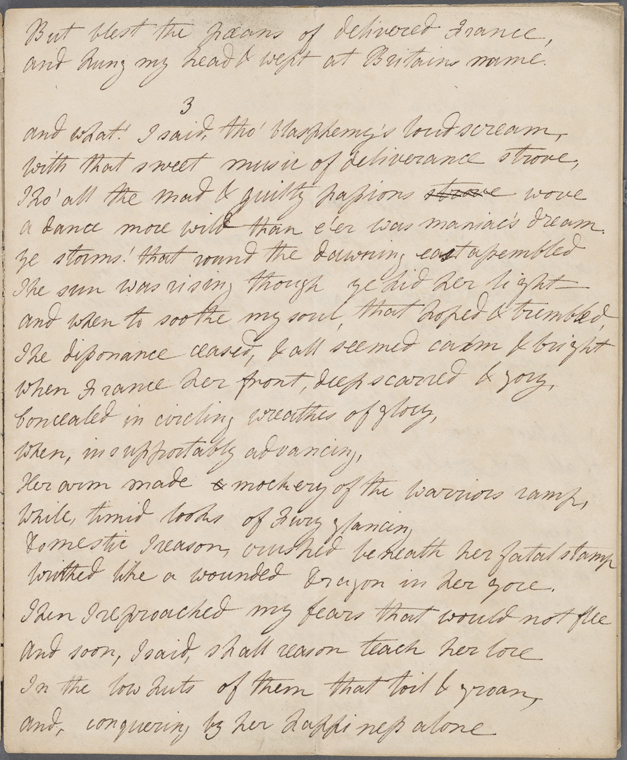 But blest the pæans of delivered France,
and hung my head & wept at Britains name.
3
and what! I said, tho' blasphemy's loud scream,
with that sweet music of deliverance strove,
Tho' all the mad & guilty passions strove wove
a dance more wild than e'er was maniac's dream.
ye storms! that round the dawning east assembled
The sun was rising though ye hid her light
and when to soothe my soul, that hoped & trembled,
The dissonance ceased, & all seemed calm & bright
when France her front, deep scarred & gory,
Concealed in circling wreathes of glory,
when, insupportably advancing,
Her arm made a mockery of the warriors ramp,
while, timid looks of Fury glancing
Domestic Treason, crushed beneath her fatal stamp
Writhed like a wounded Dragon in her gore.
Then I reproached my fears that would not flee
And soon, I said, shall reason teach her lore
In the low huts of them that toil & groan,
and, conquering by her happiness alone